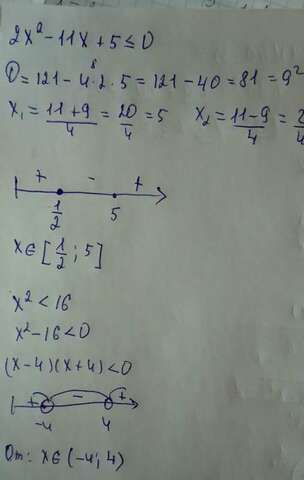 2x² - 11x + 5 ≤ 0
D = 121 - 4·2·5 = 121 - 40 = 81 = 9²
x₁ = (11+9)/4 = 20/4 = 5    x₂ = (11-9)/4 = 2/4
+ - +
1/2 5
x ∈ [1/2; 5]
x² < 16
x² - 16 < 0
(x-4)(x+4) < 0
+ - +
-4 4
От: x ∈ (-4; 4)